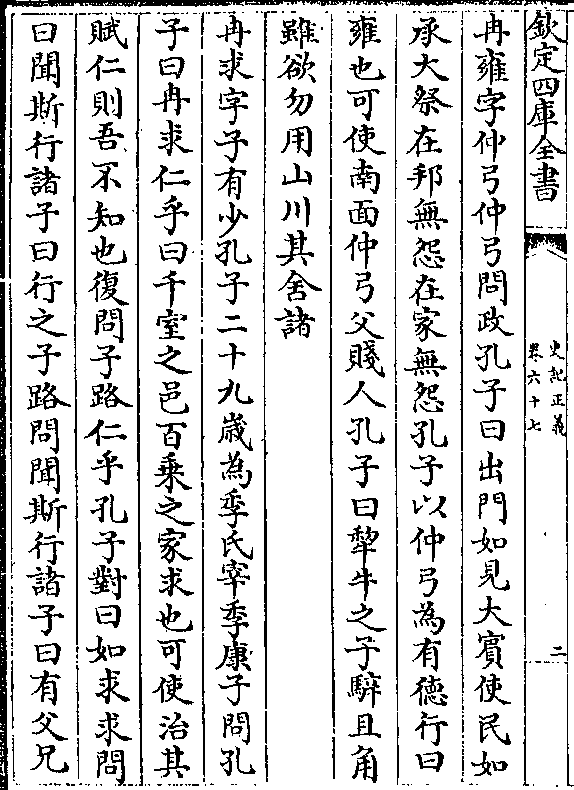 欽定四庫全書
史記正義
卷六十七
二
冉雍字仲弓仲弓問政孔子曰出門如見大賔使民如
承大祭在邦無怨在家無怨孔子以仲弓為有徳行曰
雍也可使南面仲弓父賤人孔子曰犂牛之子騂且角
雖欲勿用山川其舍諸
冉求字子有少孔子二十九嵗為季氏宰季康子問孔
子曰冉求仁乎曰千室之邑百乗之家求也可使治其
賦仁則吾不知也復問子路仁乎孔子對曰如求求問
曰聞斯行諸子曰行之子路問聞斯行諸子曰有父兄